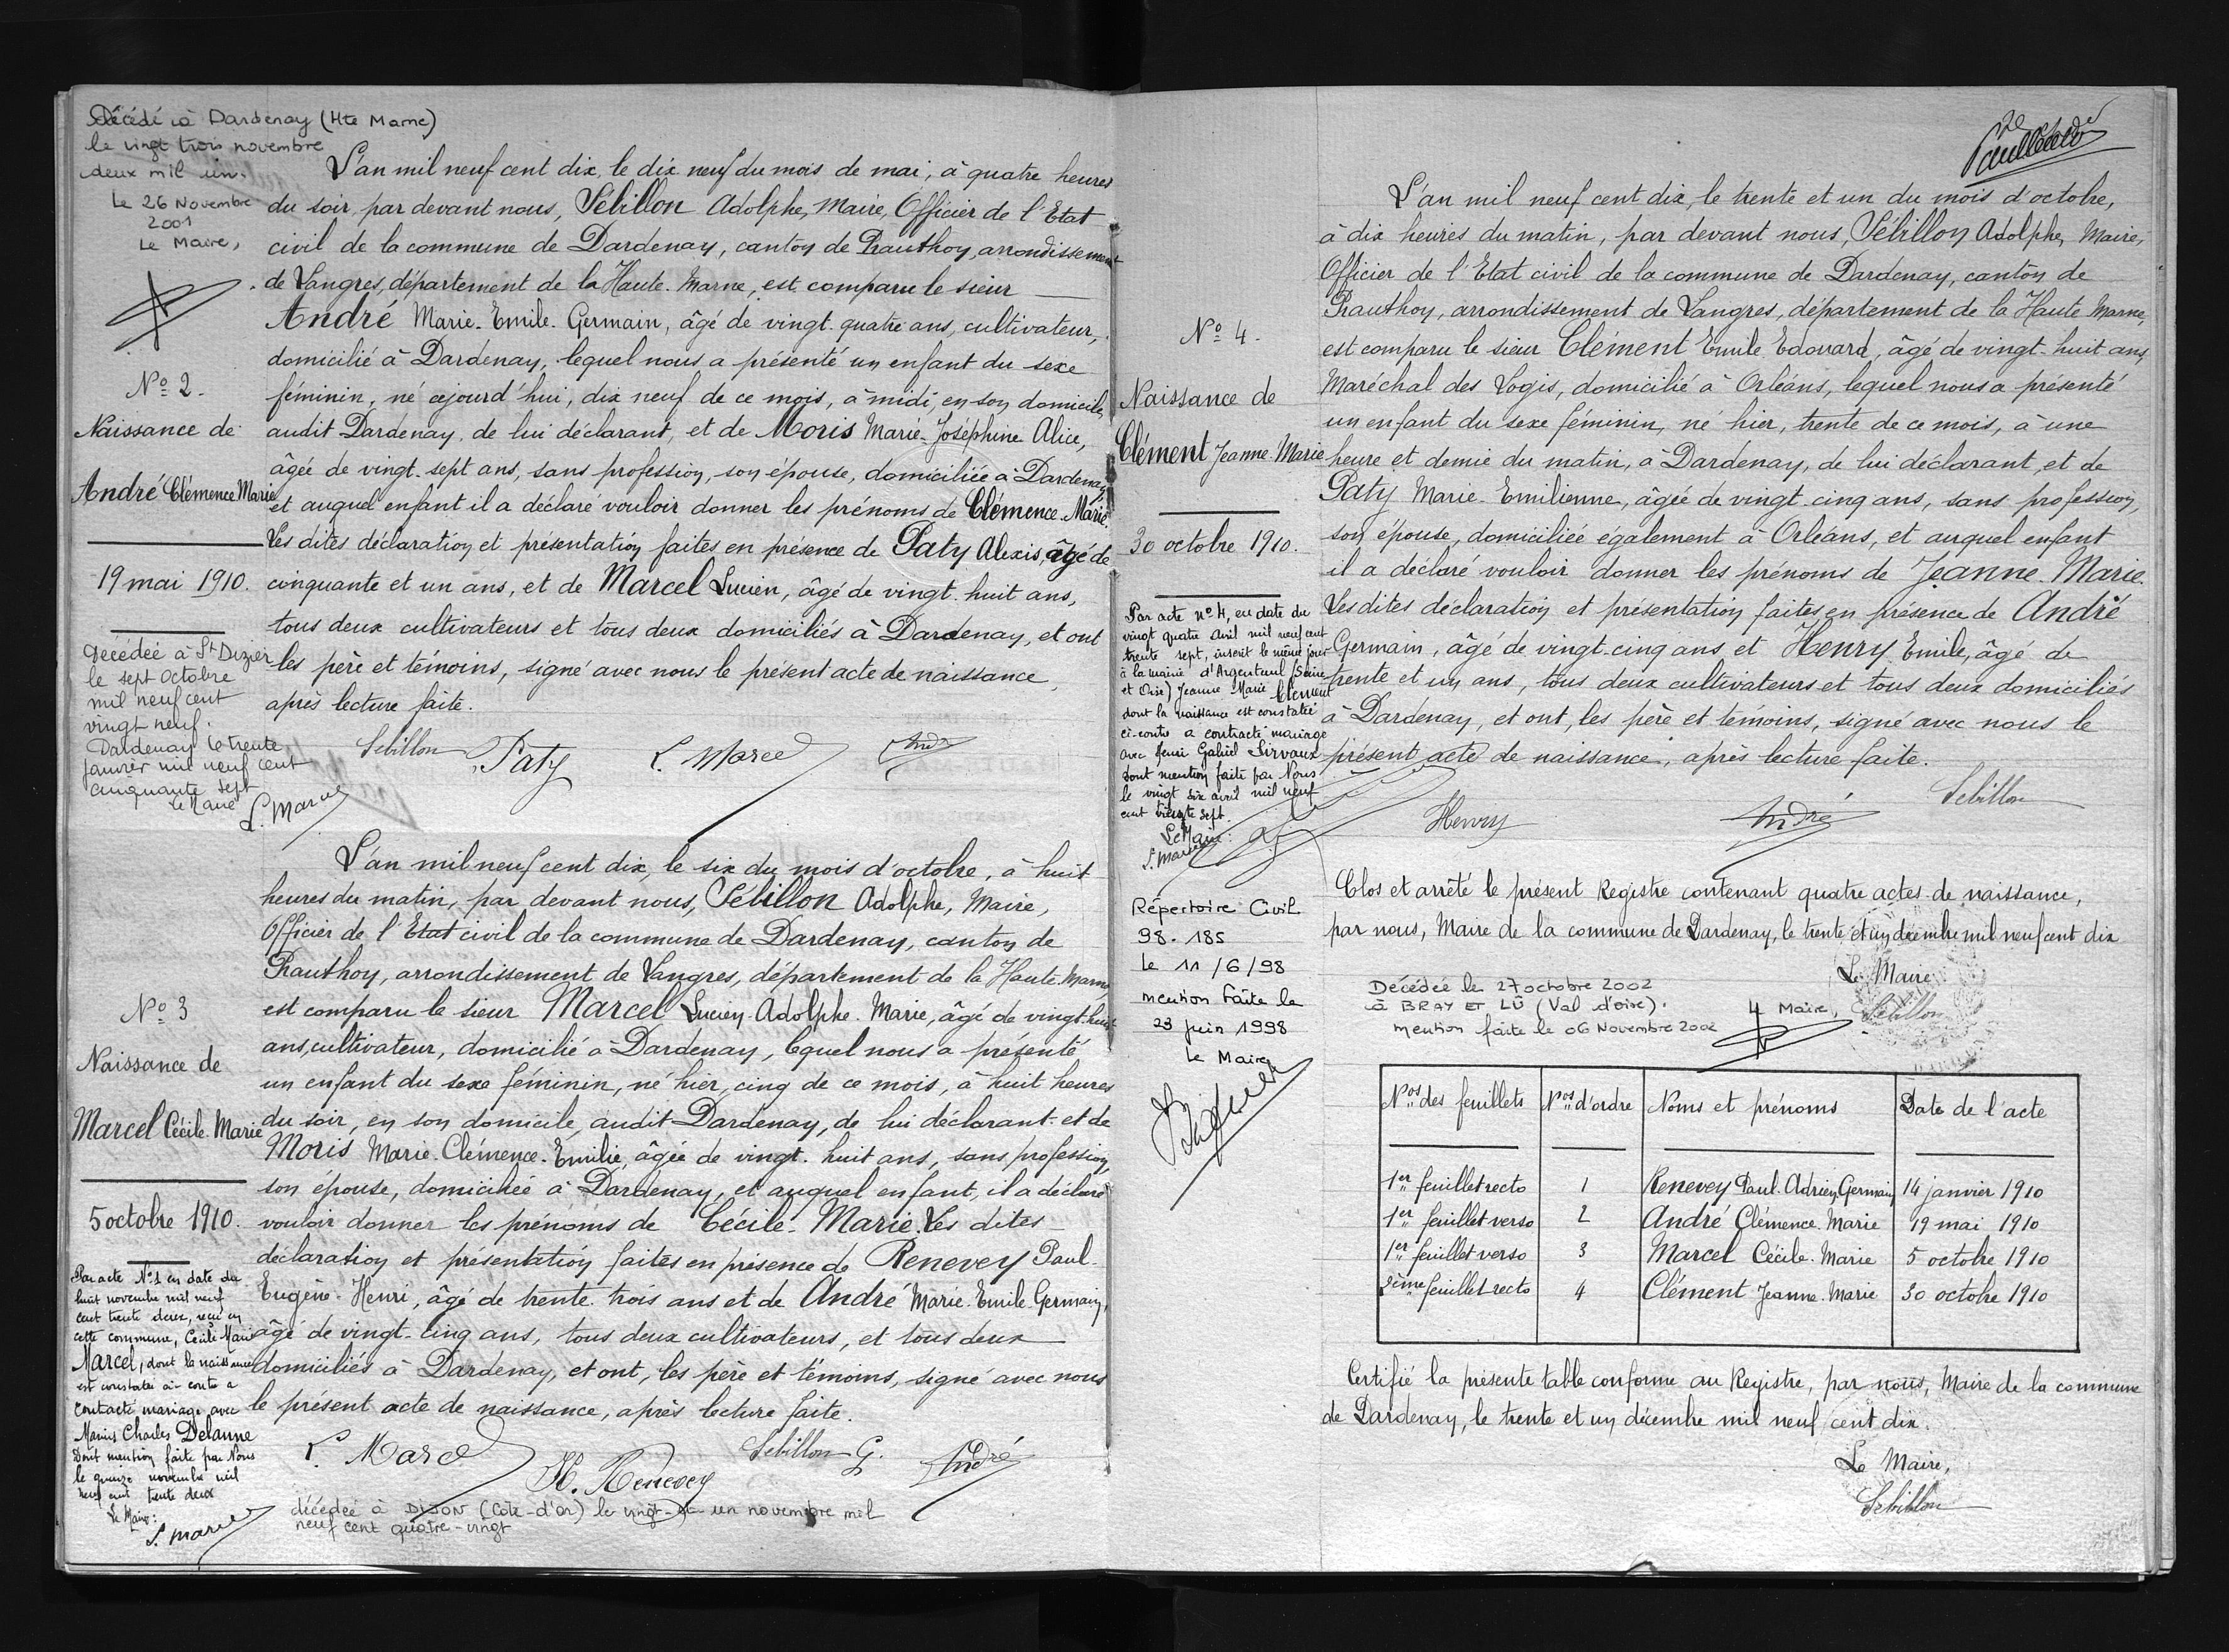 Décédé à Dardenay (Hte Marne)
le vingt trois novembre
deux mil un.
Le 26 Novembre
2001
Le Maire,
Nº 2.
Naissance de
André Clémence Marie
19 mai 1910.
Décédée à St Dizier
le sept Octobre
mil neuf cent
vingt neuf.
Dardenay le trente
janvier mil neuf cent
cinquante sept
Le Maire
L. Marcel
L'an mil neuf cent dix, le dix neuf du mois de mai, à quatre heures
du soir, par devant nous, Sébillon Adolphe, Maire, Officier de l'Etat
civil de la commune de Dardenay, canton de Prauthoy, arrondissement
de Langres, département de la Haute-Marne, est comparu le sieur
André Marie-Emile-Germain, âgé de vingt-quatre ans, cultivateur,
domicilié à Dardenay, lequel nous a présenté un enfant du sexe
féminin, né cejourd'hui, dix neuf de ce mois, à midi, en son domicile,
audit Dardenay, de lui déclarant, et de Moris Marie-Joséphine Alice,
âgée de vingt-sept ans, sans profession, son épouse, domiciliée à Dardenay
et auquel enfant il a déclaré vouloir donner les prénoms de Clémence-Marie.
Les dites déclaration et présentation faites en présence de Paty Alexis, âgé de
cinquante et un ans, et de Marcel Lucien, âgé de vingt-huit ans,
tous deux cultivateurs et tous deux domiciliés à Dardenay, et ont
les père et témoins, signé avec nous le présent acte de naissance,
après lecture faite.
Sebillon Paty L. Marcel André
Nº 3
Naissance de
Marcel Cécile-Marie
5 octobre 1910.
Par acte Nº1 en date du
huit novembre mil neuf
cent trente deux, reçu en
cette commune, Cécile Marie
Marcel, dont la naissance
est constatée ci-contre a
contracté mariage avec
Marius Charles Delanne
Dont mention faite par Nous
le quinze novembre mil
neuf cent trente deux
Le Maire:
L. Marcel
L'an mil neuf cent dix, le six du mois d'octobre, à huit
heures du matin, par devant nous, Sébillon Adolphe, Maire,
Officier de l'Etat civil de la commune de Dardenay, canton de
Prauthoy, arrondissement de Langres, département de la Haute-Marne
est comparu le sieur Marcel Lucien-Adolphe-Marie, âgé de vingt-huit
ans, cultivateur, domicilié à Dardenay, lequel nous a présenté
un enfant du sexe féminin, né hier, cinq de ce mois, à huit heures
du soir, en son domicile, audit Dardenay, de lui déclarant et de
Moris Marie-Clémence-Emilie, âgée de vingt-huit ans, sans profession,
son épouse, domiciliée à Dardenay, et auquel enfant, il a déclaré
vouloir donner les prénoms de Cécile-Marie. Les dites
déclaration et présentation faites en présence de Renevey Paul-
Eugène-Henri, âgé de trente-trois ans et de André Marie-Emile-Germain,
âgé de vingt-cinq ans, tous deux cultivateurs, et tous deux
domiciliés à Dardenay, et ont, les père et témoins, signé avec nous
le présent acte de naissance, après lecture faite.
L. Marcel H. Renevey Sebillon G. André
décédée à DIJON (Côte-d'or) le vingt-et-un novembre mil
neuf cent quatre-vingt
Nº 4.
Naissance de
Clément Jeanne-Marie
30 octobre 1910.
Par acte nº 4, en date du
vingt quatre avril mil neuf cent
trente sept, inscrit le même jour
à la mairie d'Argenteuil (Seine
et Oise) Jeanne Marie Clément
dont la naissance est constatée
ci-contre a contracté mariage
avec Henri Gabriel Sirvaux
dont mention faite par Nous
le vingt six avril mil neuf
cent trente sept.
Le Maire:
L. Marcel
Répertoire Civil
98.185
Le 11/6/98
mention faite le
23 juin 1998
Le Maire
L'an mil neuf cent dix, le trente et un du mois d'octobre,
à dix heures du matin, par devant nous, Sébillon Adolphe, Maire,
Officier de l'Etat civil de la commune de Dardenay, canton de
Prauthoy, arrondissement de Langres, département de la Haute Marne,
est comparu le sieur Clément Emile Edouard, âgé de vingt-huit ans,
Maréchal des Logis, domicilié à Orléans, lequel nous a présenté
un enfant du sexe féminin, né hier, trente de ce mois, à une
heure et demie du matin, à Dardenay, de lui déclarant, et de
Paty Marie-Emilienne, âgée de vingt-cinq ans, sans profession,
son épouse, domiciliée également à Orléans, et auquel enfant
il a déclaré vouloir donner les prénoms de Jeanne-Marie.
Les dites déclaration et présentation faites en présence de André
Germain, âgé de vingt-cinq ans et Henry Emile, âgé de
trente et un ans, tous deux cultivateurs et tous deux domiciliés
à Dardenay, et ont, les père et témoins, signé avec nous le
présent acte de naissance, après lecture faite.
Henry André Sebillon
Clos et arrêté le présent Registre contenant quatre actes de naissance,
par nous, Maire de la commune de Dardenay, le trente et un décembre mil neuf cent dix
Le Maire
Sebillon
Décédée le 27 octobre 2002
à BRAY ET LÛ (Val d'oise).
mention faite le 06 Novembre 2002
Maire,
Nos des feuillets Nos d'ordre Noms et prénoms Date de l'acte
1er feuillet recto 1 Renevey Paul-Adrien-Germain 14 janvier 1910
1er feuillet verso 2 André Clémence-Marie 19 mai 1910
1er feuillet verso 3 Marcel Cécile-Marie 5 octobre 1910
2ème feuillet recto 4 Clément Jeanne-Marie 30 octobre 1910
Certifié la présente table conforme au Registre, par nous, Maire de la commune
de Dardenay, le trente et un décembre mil neuf cent dix.
Le Maire,
Sebillon